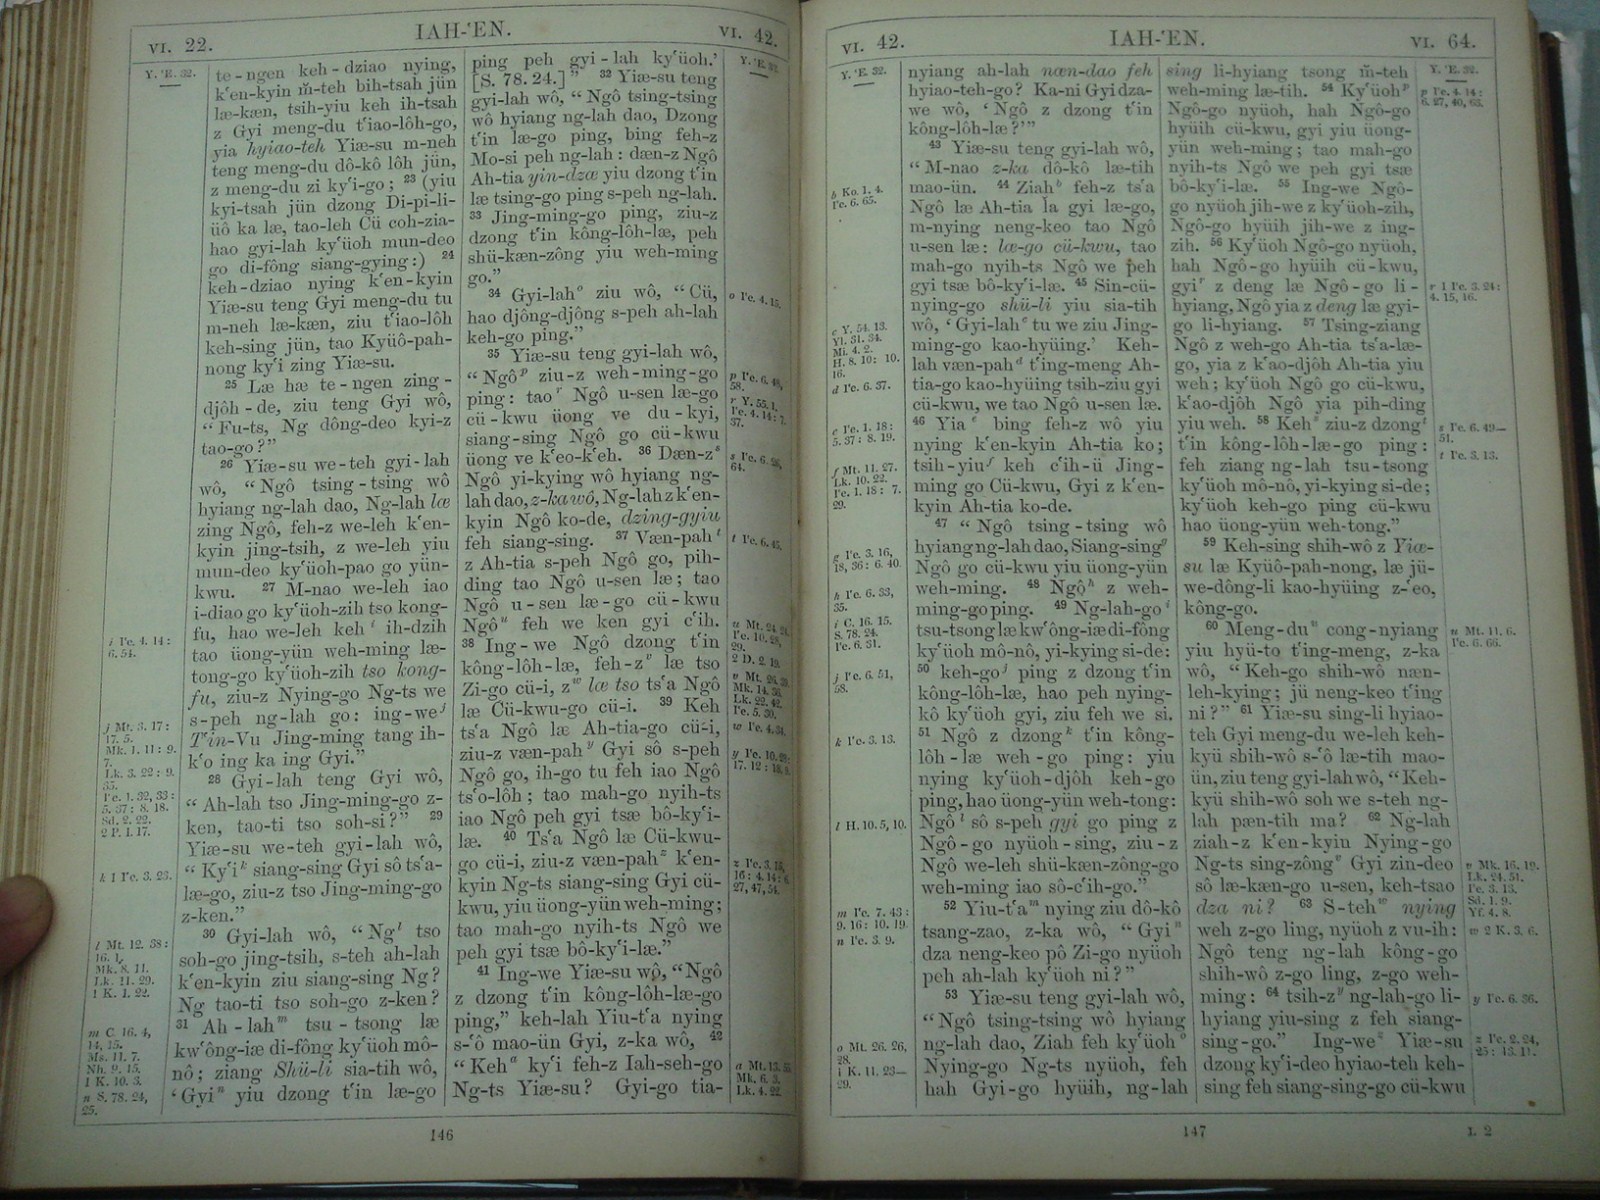 VI. 22.
IAH-'EN.
VI. 42.
Y. 'E. 32.
te-ngen keh-dziao nying,
k'en-kyin m̄-teh bih-tsah jün
læ-kæn, tsih-yiu keh ih-tsah
z Gyi meng-du t'iao-lôh-go,
yia hyiao-teh Yiæ-su m-neh
teng meng-du dô-kô lôh jün,
z meng-du zi ky'i-go; 23 (yiu
kyi-tsah jün dzong Di-pi-li-
üô ka læ, tao-leh Cü coh-zia-
hao gyi-lah ky'üoh mun-deo
go di-fông siang-gying:) 24
keh-dziao nying k'en-kyin
Yiæ-su teng Gyi meng-du tu
m-neh læ-kæn, ziu t'iao-lôh
keh-sing jün, tao Kyüô-pah-
nong ky'i zing Yiæ-su.
25 Læ hæ te-ngen zing-
djôh-de, ziu teng Gyi wô,
“Fu-ts, Ng dông-deo kyi-z
tao-go?”
26 Yiæ-su we-teh gyi-lah
wô, “Ngô tsing-tsing wô
hyiang ng-lah dao, Ng-lah læ
zing Ngô, feh-z we-leh k'en-
kyin jing-tsih, z we-leh yiu
mun-deo ky'üoh-pao go yün-
kwu. 27 M-nao we-leh iao
i-diao go ky'üoh-zih tso kong-
fu, hao we-leh keh i ih-dzih
tao üong-yün weh-ming læ-
tong-go ky'üoh-zih tso kong-
fu, ziu-z Nying-go Ng-ts we
s-peh ng-lah go: ing-we j
T'in-Vu Jing-ming tang ih-
k'o ing ka ing Gyi.”
28 Gyi-lah teng Gyi wô,
“Ah-lah tso Jing-ming-go z-
ken, tao-ti tso soh-si?” 29
Yiæ-su we-teh gyi-lah wô,
“Ky'i k siang-sing Gyi sô ts'a-
læ-go, ziu-z tso Jing-ming-go
z-ken.”
30 Gyi-lah wô, “Ng l tso
soh-go jing-tsih, s-teh ah-lah
k'en-kyin ziu siang-sing Ng?
Ng tao-ti tso soh-go z-ken?
31 Ah-lah m tsu-tsong læ
kw'ông-iæ di-fông ky'üoh mô-
nô; ziang Shü-li sia-tih wô,
‘Gyi n yiu dzong t'in læ-go
i I'e. 4. 14:
6. 54.
j Mt. 3. 17:
17. 5.
Mk. 1. 11: 9.
7.
Lk. 3. 22: 9.
35.
I'e. 1. 32, 33:
5. 37: 8. 18.
Sd. 2. 22.
2 P. 1. 17.
k 1 I'e. 3. 23.
l Mt. 12. 38:
16. 1.
Mk. 8. 11.
Lk. 11. 29.
1 K. 1. 22.
m C. 16. 4,
14, 15.
Ms. 11. 7.
Nh. 9. 15.
1 K. 10. 3.
n S. 78. 24,
25.
ping peh gyi-lah ky'üoh.’
[S. 78. 24.]” 32 Yiæ-su teng
gyi-lah wô, “Ngô tsing-tsing
wô hyiang ng-lah dao, Dzong
t'in læ-go ping, bing feh-z
Mo-si peh ng-lah: dæn-z Ngô
Ah-tia yin-dzæ yiu dzong t'in
læ tsing-go ping s-peh ng-lah.
33 Jing-ming-go ping, ziu-z
dzong t'in kông-lôh-læ, peh
shü-kæn-zông yiu weh-ming
go.”
34 Gyi-lah o ziu wô, “Cü,
hao djông-djông s-peh ah-lah
keh-go ping.”
35 Yiæ-su teng gyi-lah wô,
“Ngô p ziu-z weh-ming-go
ping: tao r Ngô u-sen læ-go
cü-kwu üong ve du-kyi,
siang-sing Ngô go cü-kwu
üong ve k'eo-k'eh. 36 Dæn-z s
Ngô yi-kying wô hyiang ng-
lah dao, z-ka wô, Ng-lah z k'en-
kyin Ngô ko-de, dzing-gyiu
feh siang-sing. 37 Væn-pah t
z Ah-tia s-peh Ngô go, pih-
ding tao Ngô u-sen læ; tao
Ngô u-sen læ-go cü-kwu
Ngô u feh we ken gyi c'ih.
38 Ing-we Ngô dzong t'in
kông-lôh-læ, feh-z v læ tso
Zi-go cü-i, z w læ tso ts'a Ngô
læ Cü-kwu-go cü-i. 39 Keh
ts'a Ngô læ Ah-tia-go cü-i,
ziu-z væn-pah y Gyi sô s-peh
Ngô go, ih-go tu feh iao Ngô
ts'o-lôh; tao mah-go nyih-ts
iao Ngô peh gyi tsæ bô-ky'i-
læ. 40 Ts'a Ngô læ Cü-kwu-
go cü-i, ziu-z væn-pah z k'en-
kyin Ng-ts siang-sing Gyi cü-
kwu, yiu üong-yün weh-ming;
tao mah-go nyih-ts Ngô we
peh gyi tsæ bô-ky'i-læ.”
41 Ing-we Yiæ-su wô, “Ngô
z dzong t'in kông-lôh-læ-go
ping,” keh-lah Yiu-t'a nying
s-'ô mao-ün Gyi, z-ka wô, 42
“Keh a ky'i feh-z Iah-seh-go
Ng-ts Yiæ-su? Gyi-go tia-
Y. 'E. 32.
o I'e. 4. 15.
p I'e. 6. 48,
58.
r Y. 55. 1.
I'e. 4. 14: 7.
37.
s I'e. 6. 26,
64.
t I'e. 6. 45.
u Mt. 24. 24.
I'e. 10. 28,
29.
2 D. 2. 19.
v Mt. 26. 39.
Mk. 14. 36.
Lk. 22. 42.
I'e. 5. 30.
w I'e. 4. 34.
y I'e. 10. 28:
17. 12: 18. 9.
z I'e. 3. 15,
16: 4. 14: 6.
27, 47, 54.
a Mt. 13. 55.
Mk. 6. 3.
Lk. 4. 22.
146
VI. 42.
IAH-'EN.
VI. 64.
Y. 'E. 32.
b Ko. 1. 4.
I'e. 6. 65.
c Y. 54. 13.
Yl. 31. 34.
Mi. 4. 2.
H. 8. 10: 10.
16.
d I'e. 6. 37.
e I'e. 1. 18:
5. 37: 8. 19.
f Mt. 11. 27.
Lk. 10. 22.
I'e. 1. 18: 7.
29.
g I'e. 3. 16,
18, 36: 6. 40.
h I'e. 6. 33,
35.
i C. 16. 15.
S. 78. 24.
I'e. 6. 31.
j I'e. 6. 51,
58.
k I'e. 3. 13.
l H. 10. 5, 10.
m I'e. 7. 43:
9. 16: 10. 19.
n I'e. 3. 9.
o Mt. 26. 26,
28.
1 K. 11. 23—
29.
nyiang ah-lah næn-dao feh
hyiao-teh-go? Ka-ni Gyi dza-
we wô, ‘Ngô z dzong t'in
kông-lôh-læ?’”
43 Yiæ-su teng gyi-lah wô,
“M-nao z-ka dô-kô læ-tih
mao-ün. 44 Ziah b feh-z ts'a
Ngô læ Ah-tia la gyi læ-go,
m-nying neng-keo tao Ngô
u-sen læ: læ-go cü-kwu, tao
mah-go nyih-ts Ngô we peh
gyi tsæ bô-ky'i-læ. 45 Sin-cü-
nying-go shü-li yiu sia-tih
wô, ‘Gyi-lah c tu we ziu Jing-
ming-go kao-hyüing.’ Keh-
lah væn-pah d t'ing-meng Ah-
tia-go kao-hyüing tsih-ziu gyi
cü-kwu, we tao Ngô u-sen læ.
46 Yia e bing feh-z wô yiu
nying k'en-kyin Ah-tia ko;
tsih-yiu f keh c'ih-ü Jing-
ming go Cü-kwu, Gyi z k'en-
kyin Ah-tia ko-de.
47 “Ngô tsing-tsing wô
hyiang ng-lah dao, Siang-sing g
Ngô go cü-kwu yiu üong-yün
weh-ming. 48 Ngô h z weh-
ming-go ping. 49 Ng-lah-go i
tsu-tsong læ kw'ông-iæ di-fông
ky'üoh mô-nô, yi-kying si-de:
50 keh-go j ping z dzong t'in
kông-lôh-læ, hao peh nying-
kô ky'üoh gyi, ziu feh we si.
51 Ngô z dzong k t'in kông-
lôh-læ weh-go ping: yiu
nying ky'üoh-djôh keh-go
ping, hao üong-yün weh-tong:
Ngô l sô s-peh gyi go ping z
Ngô-go nyüoh-sing, ziu-z
Ngô we-leh shü-kæn-zông-go
weh-ming iao sô-c'ih-go.”
52 Yiu-t'a m nying ziu dô-kô
tsang-zao, z-ka wô, “Gyi n
dza neng-keo pô Zi-go nyüoh
peh ah-lah ky'üoh ni?”
53 Yiæ-su teng gyi-lah wô,
“Ngô tsing-tsing wô hyiang
ng-lah dao, Ziah feh ky'üoh o
Nying-go Ng-ts nyüoh, feh
hah Gyi-go hyüih, ng-lah
sing li-hyiang tsong m̄-teh
weh-ming læ-tih. 54 Ky'üoh p
Ngô-go nyüoh, hah Ngô-go
hyüih cü-kwu, gyi yiu üong-
yün weh-ming; tao mah-go
nyih-ts Ngô we peh gyi tsæ
bô-ky'i-læ. 55 Ing-we Ngô-
go nyüoh jih-we z ky'üoh-zih,
Ngô-go hyüih jih-we z ing-
zih. 56 Ky'üoh Ngô-go nyüoh,
hah Ngô-go hyüih cü-kwu,
gyi r z deng læ Ngô-go li-
hyiang, Ngô yia z deng læ gyi-
go li-hyiang. 57 Tsing-ziang
Ngô z weh-go Ah-tia ts'a-læ-
go, yia z k'ao-djôh Ah-tia yiu
weh; ky'üoh Ngô go cü-kwu,
k'ao-djôh Ngô yia pih-ding
yiu weh. 58 Keh s ziu-z dzong t
t'in kông-lôh-læ-go ping:
feh ziang ng-lah tsu-tsong
ky'üoh mô-nô, yi-kying si-de;
ky'üoh keh-go ping cü-kwu
hao üong-yün weh-tong.”
59 Keh-sing shih-wô z Yiæ-
su læ Kyüô-pah-nong, læ jü-
we-dông-li kao-hyüing z-'eo,
kông-go.
60 Meng-du u cong-nyiang
yiu hyü-to t'ing-meng, z-ka
wô, “Keh-go shih-wô næn-
leh-kying; jü neng-keo t'ing
ni?” 61 Yiæ-su sing-li hyiao-
teh Gyi meng-du we-leh keh-
kyü shih-wô s-'ô læ-tih mao-
ün, ziu teng gyi-lah wô, “Keh-
kyü shih-wô soh we s-teh ng-
lah pæn-tih ma? 62 Ng-lah
ziah-z k'en-kyin Nying-go
Ng-ts sing-zông v Gyi zin-deo
sô læ-kæn-go u-sen, keh-tsao
dza ni? 63 S-teh w nying
weh z-go ling, nyüoh z vu-ih:
Ngô teng ng-lah kông-go
shih-wô z-go ling, z-go weh-
ming: 64 tsih-z y ng-lah-go li-
hyiang yiu-sing z feh siang-
sing-go.” Ing-we z Yiæ-su
dzong ky'i-deo hyiao-teh keh-
sing feh siang-sing-go cü-kwu
Y. 'E. 32.
p I'e. 4. 14:
6. 27, 40, 63.
r 1 I'e. 3. 24:
4. 15, 16.
s I'e. 6. 49—
51.
t I'e. 3. 13.
u Mt. 11. 6.
I'e. 6. 66.
v Mk. 16. 19.
Lk. 24. 51.
I'e. 3. 13.
Sd. 1. 9.
Yf. 4. 8.
w 2 K. 3. 6.
y I'e. 6. 36.
z I'e. 2. 24,
25: 13. 11.
147
L 2